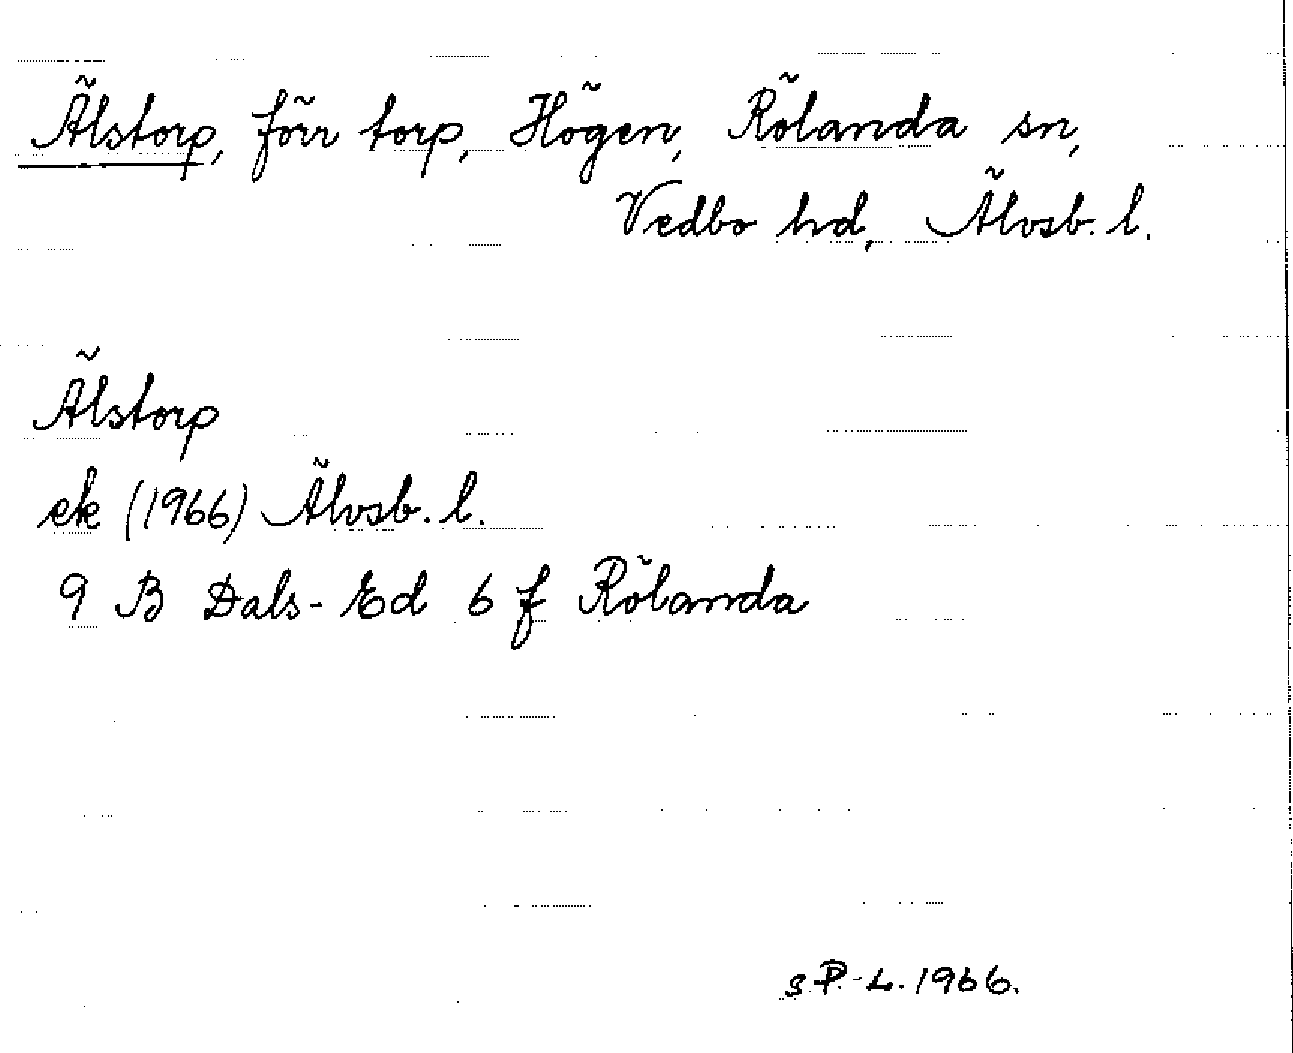 Älstorp, förr torp, Högen, Rölanda sn,
Vedbo hd, Älvsb. l.
Älstorp
ek (1966) Älvsb. l.
9 B Dals-Ed 6 f Rölanda
S P.-L. 1966.